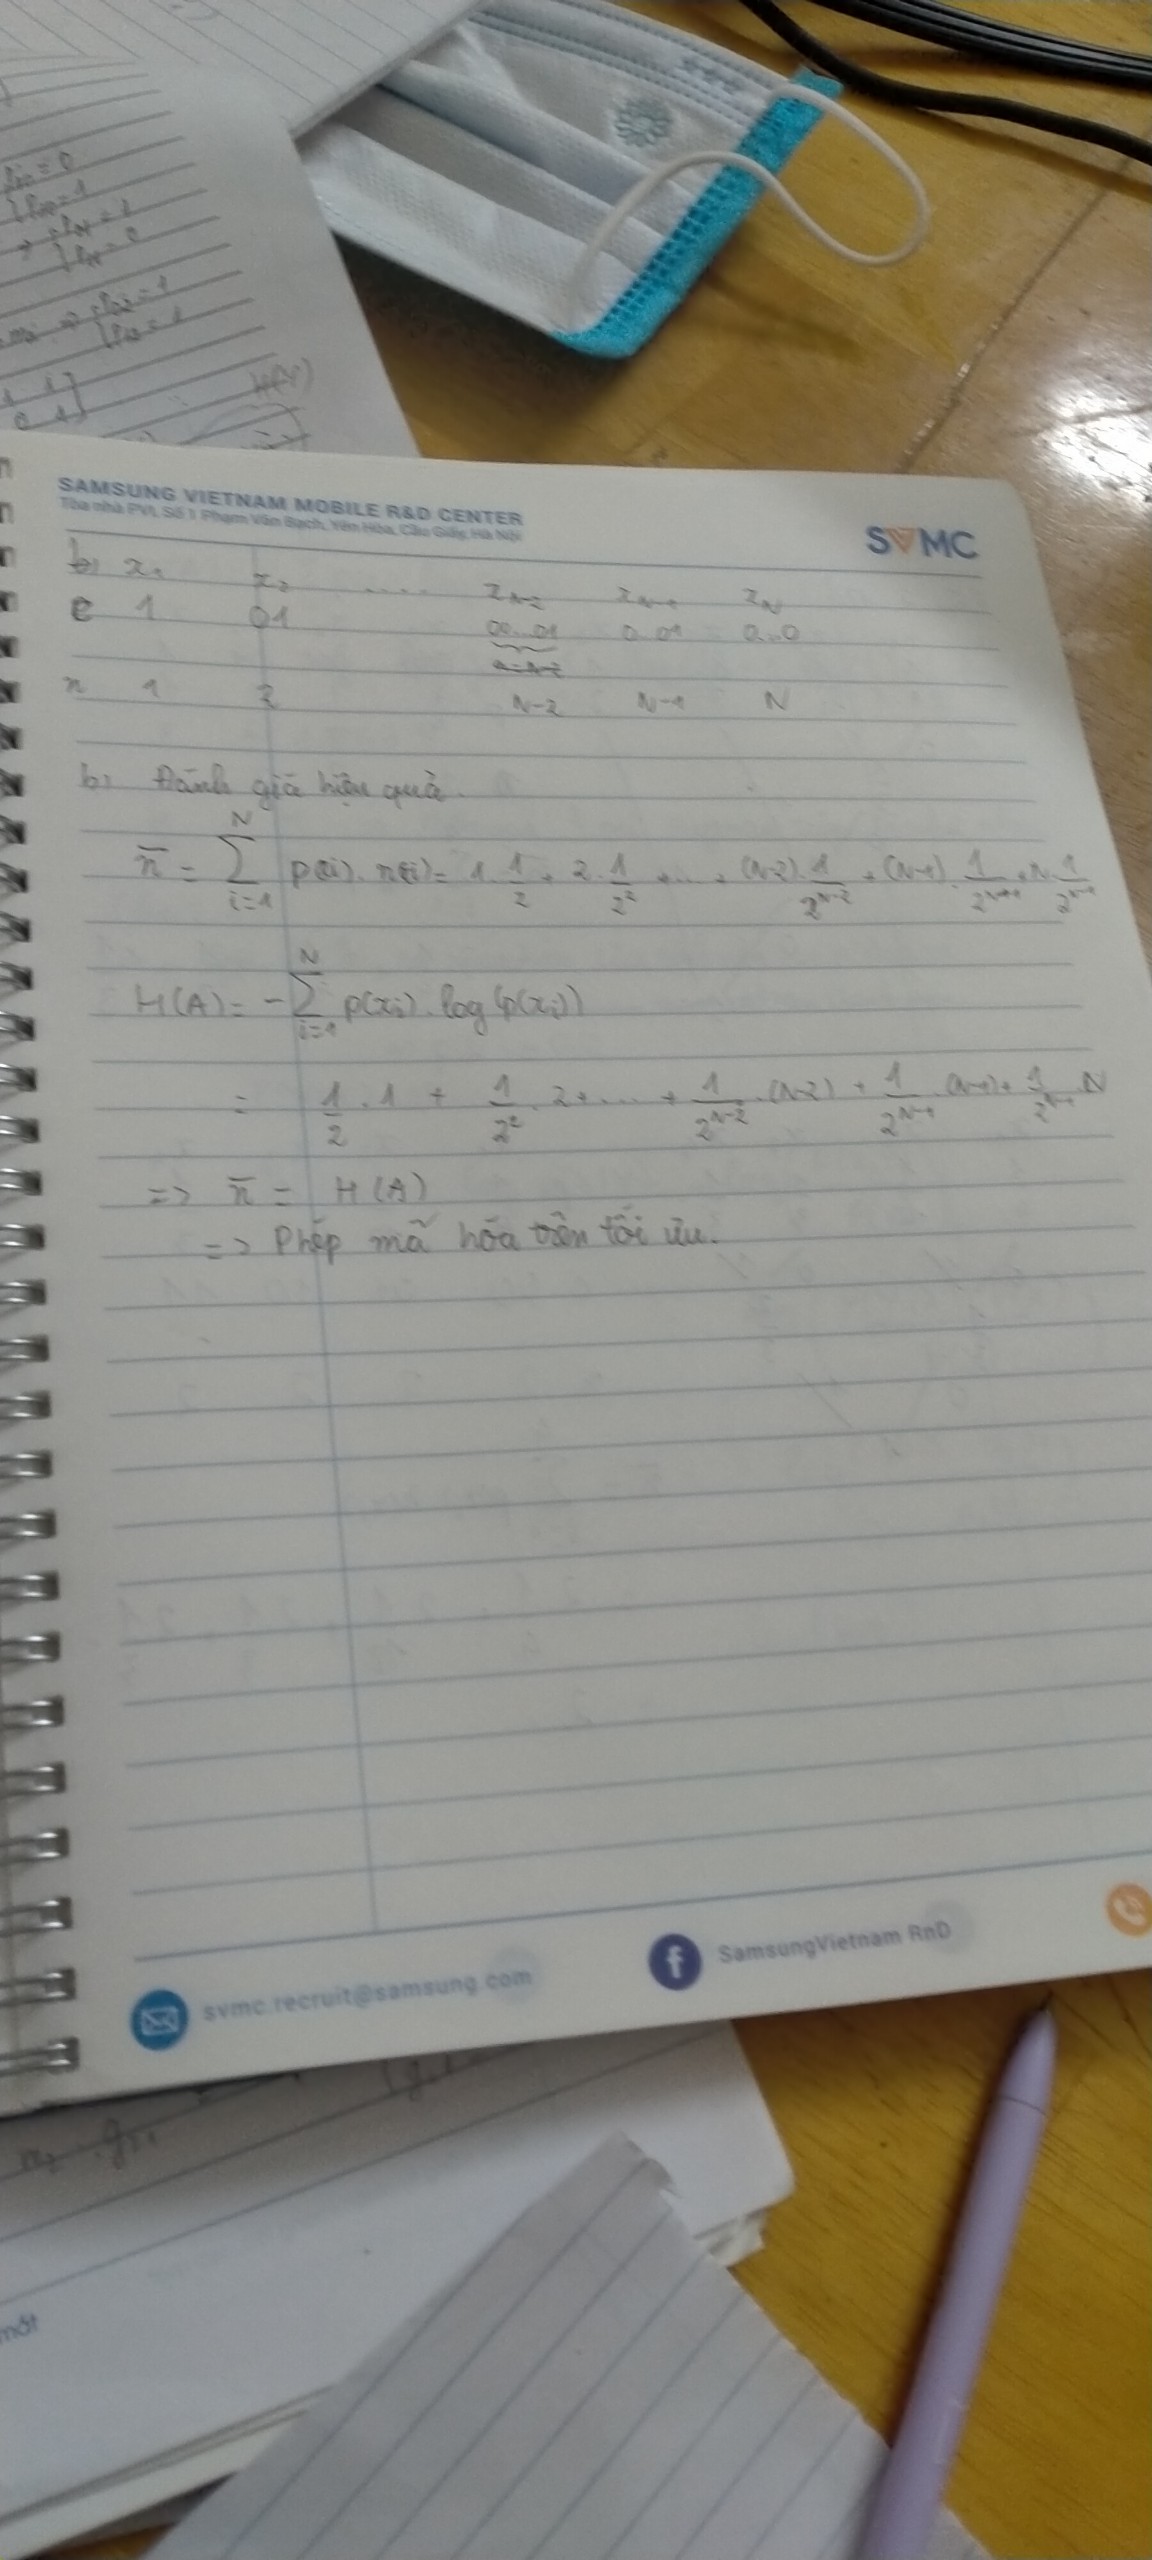 l₀₀ = 0
l₁₀ = 1
→ l₀₁ = 1
= 0
m₂ → = 1
= 1
1 1]
0 1]
H(Y)
SAMSUNG VIETNAM MOBILE R&D CENTER
Tòa nhà PVI, Số 1 Phạm Văn Bạch, Yên Hòa, Cầu Giấy, Hà Nội
SVMC
b) x₁ x₂ .... x_{N-2} x_{N-1} x_N
e 1 01 00...01 0..01 0...0
n 1 2 N-2 N-1 N
b) Đánh giá hiệu quả.
n̄ = Σ_{i=1}^{N} p(i).n(i) = 1.1/2 + 2.1/2² + ... + (N-2).1/2^{N-2} + (N-1).1/2^{N-1} + N.1/2^{N-1}
H(A) = -Σ_{i=1}^{N} p(x_i).log(p(x_i))
= 1/2.1 + 1/2².2 + ... + 1/2^{N-2}.(N-2) + 1/2^{N-1}.(N-1) + 1/2^{N-1} N
=> n̄ = H(A)
=> Phép mã hóa trên tối ưu.
svmc.recruit@samsung.com
SamsungVietnam RnD
mắt